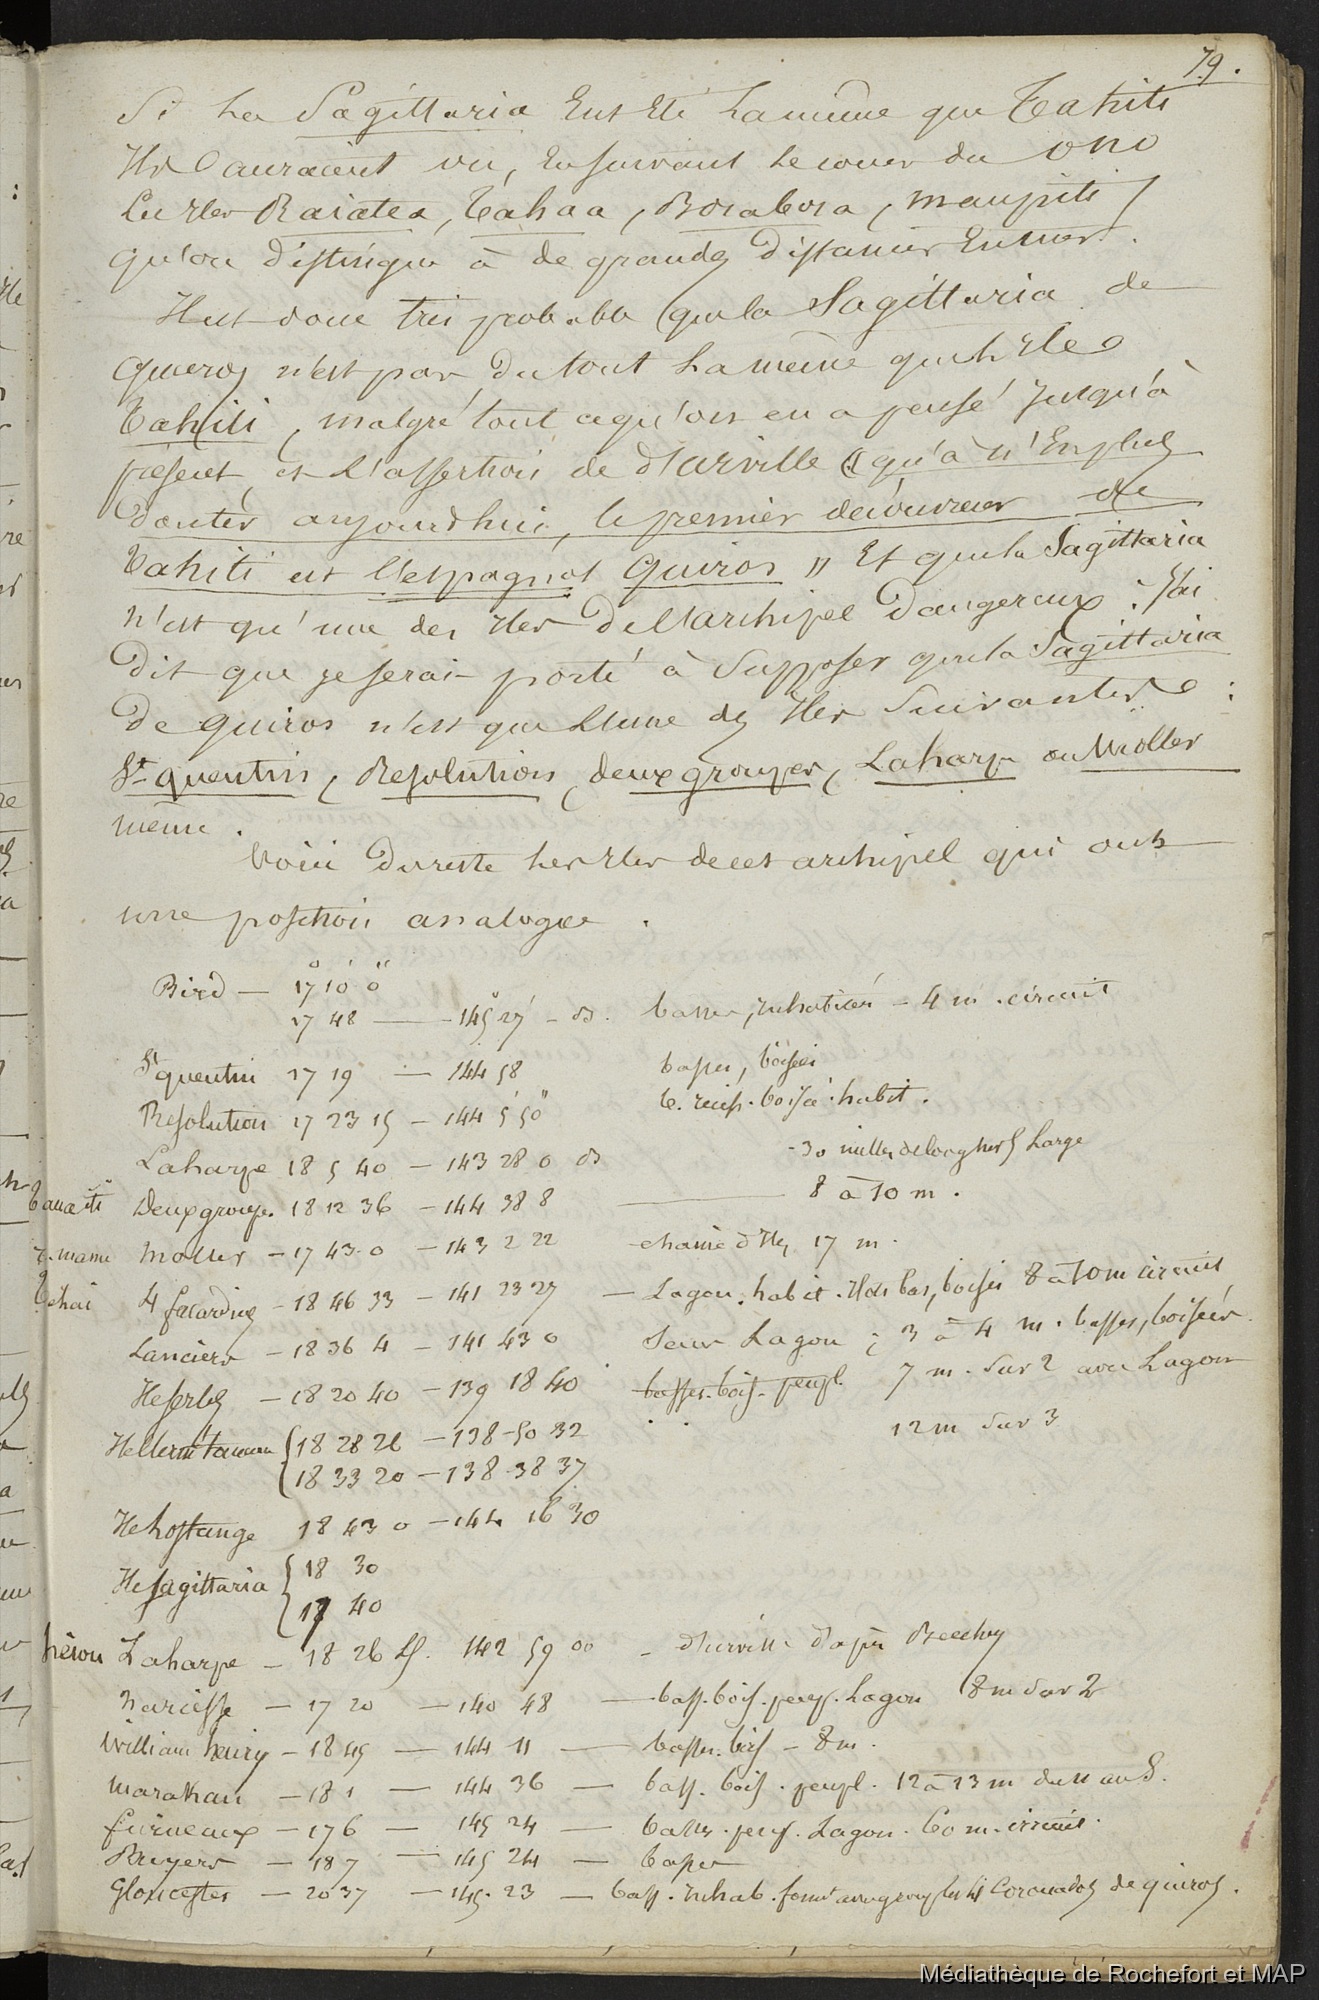 79.
Si La Sagittaria Eut Eté La même que Tahiti
Ils L'auraient vu, En suivant Le cours du ONO
Les Iles Raiatea, Tahaa, Borabora, maupiti,
qu'on distingue à de grandes distances En mer.
Il est donc très probable que la Sagittaria de
Quiros n'est pas du tout La même que L'Ile
Tahiti, malgré tout ce qu'on en a pensé jusqu'à
présent et L'assertion de d'urville (qu'à n'En plus
douter aujourdhui, le premier découvreur de
Tahiti est L'espagnol Quiros " Et que la Sagittaria
n'est qu'une des Iles De L'archipel Dangereux : J'ai
Dit que je serai porté à Supposer que la Sagittaria
De quiros n'est que L'une des Iles Suivantes :
St quentin, Resolution, deux groupes, Laharpe ou Moller
même.
Voici Du reste Les Iles de cet archipel qui ont
une position analogue.
Bird — 17° 10' 0"
17 48 — 145° 27' - d°. basses, inhabitées - 4 m. circuit
St quentin 17 19 — 144 58 basses, boisées
Resolution 17 23 15 — 144 5' 50" b. récifs. boisé. habit.
Laharpe 18 5 40 — 143 28 0 d° - 30 milles de long Large
Deux groupes. 18 12 36 — 144 38 8 — 8 à 10 m.
Moller — 17 43. 0 — 143 2 22 - chaine d'Iles 17 m.
Tehai 4 facardins — 18 46 33 — 141 23 27 — Lagon. habit. Ilots bas, boisés 8 à 10 m circuit
Lanciers — 18 36 4 — 141 43 0 Sans Lagon ; 3 à 4 m. basses, boisées.
Ile Serles — 18 20 40 — 139 18 40 basses. bois. peupl. 7 m. Sur 2 avec Lagon
Ile Clermt Tonnerre { 18 28 26 — 138 - 50 32 12 m Sur 3
{ 18 33 20 — 138. 38 37
Ile hostange 18 43 0 — 144 16 30
Ile Sagittaria { 18 30
{ 17 40
héiou Laharpe — 18 26 Lg. 142 59 00 - d'urville d'après Beechey
Narcisse — 17 20 — 140 48 — bass. bois. peup. Lagon 8 m Sur 2
William henry — 18 45 — 144 11 — basses. bois — 8 m.
Marakau — 18 1 — 144 36 — bass. bois. peupl. 12 à 13 m du N au S.
furneaux — 17 6 — 145 24 — basses. peup. Lagon. 60 m. circuit.
Bruyers — 18 7 — 145 24 — basses
Gloucester — 20 37 — 145. 23 — bass. inhab. formt un groupe les 4 Coronados de quiros.
Médiathèque de Rochefort et MAP